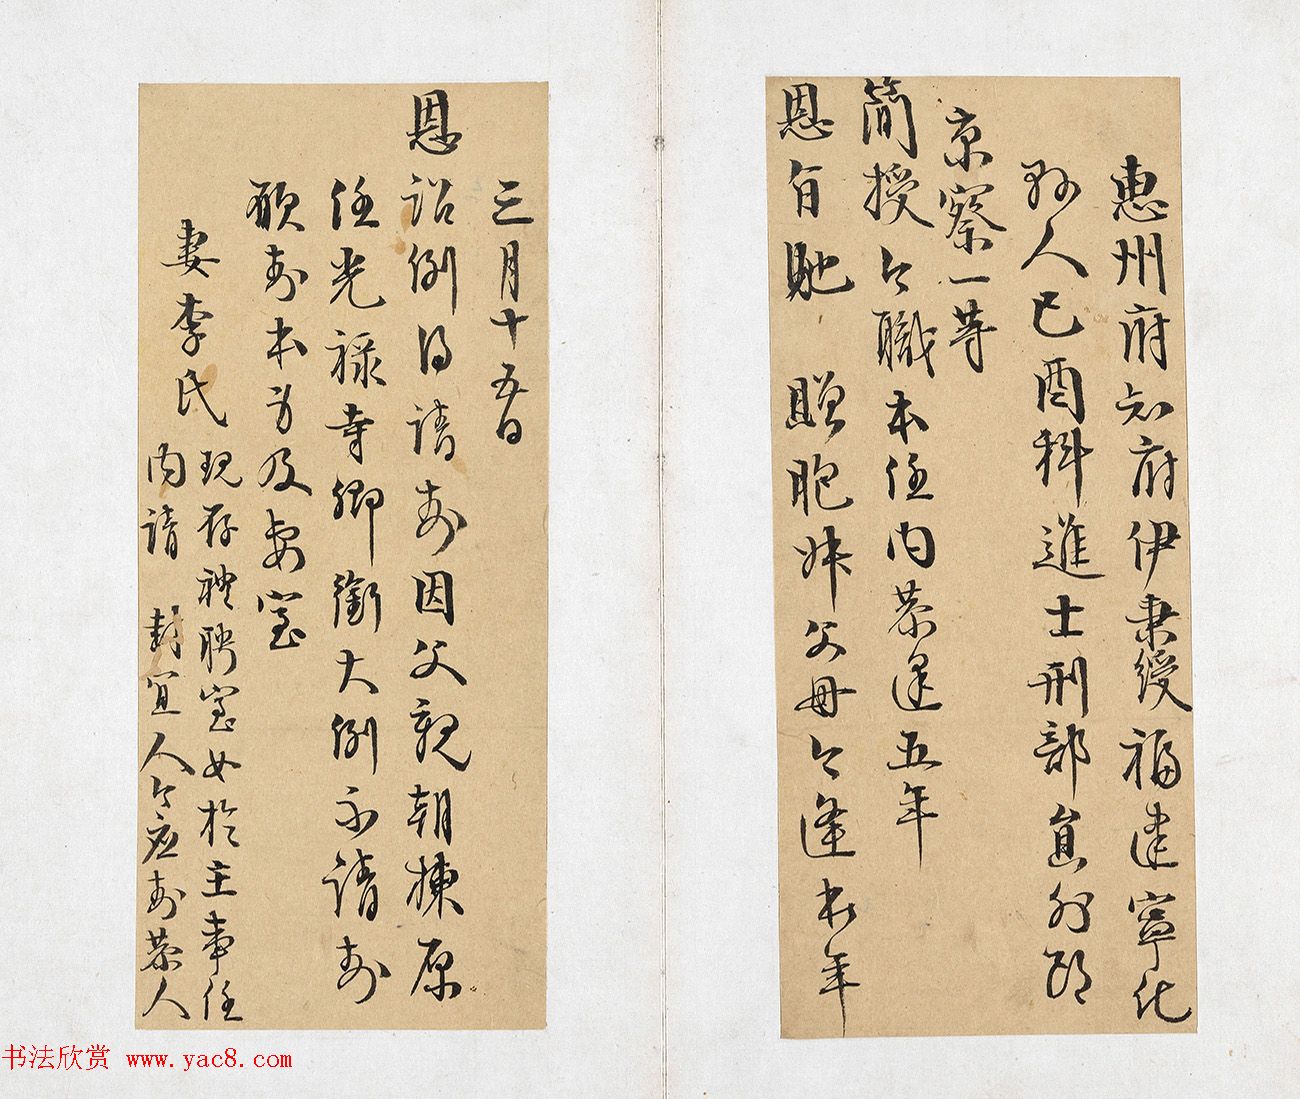 惠州府知府伊秉綬福建寧化
縣人己酉科進士刑部員外郎
京察一等
簡授今職本任內恭逢五年
恩旨貤贈胞妹父母今逢本年
三月十五日
恩詔例得請封因父親朝棟原
任光祿寺卿銜大例不請封
願封本身及妻室
妻李氏
現存禮聘室女於主事任
內請封宜人今應封恭人
书法欣赏 www.yac8.com